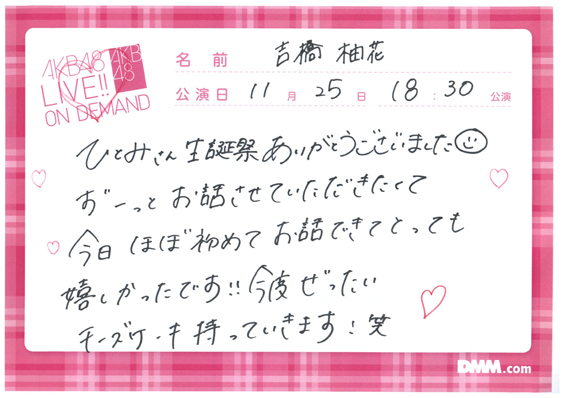 AKB48
AKB
48
LIVE!!
ON DEMAND
名前 吉橋 柚花
公演日 11月 25日 18:30 公演
ひとみさん生誕祭ありがとうございました
ずーっとお話させていただきたくて
今日ほぼ初めてお話できてとっても
嬉しかったです!!今度ぜったい
チーズケーキ持っていきます!笑
DMM.com